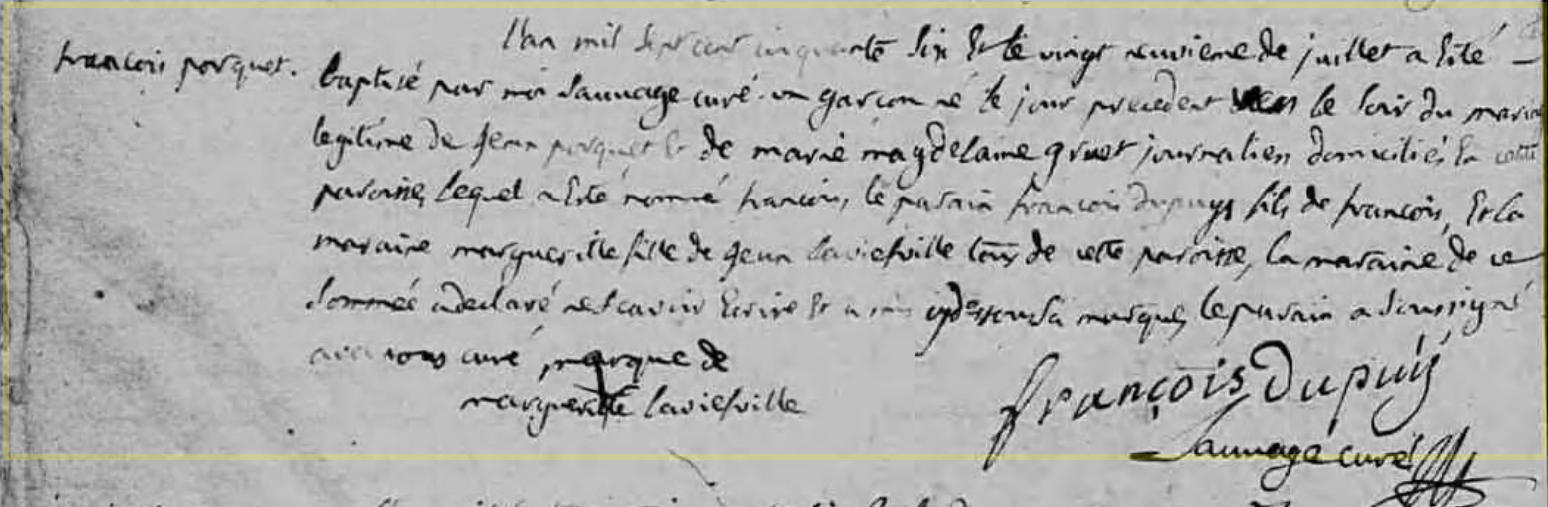 l'an mil sept cent cinquante six Et le vingt neuvieme de juillet a Esté
françois porquet.
baptisé par moi Sauvage curé un garçon né le jour precedent vers le soir du mariage
legitime de jean porquet Et de marie magdelaine gruet journalier domicilié En cette
paroisse, lequel a Esté nommé francois, le parain francois dupuys fils de francois, Et la
maraine margueritte fille de jean laviefville tous de cette paroisse, la maraine de ce
sommée a declaré ne scavoir Ecrire Et a mis cydessous sa marque, le parain a soussigné
avec nous curé, marque de
margueritte laviefville
françois Dupuÿ
Sauvage curé